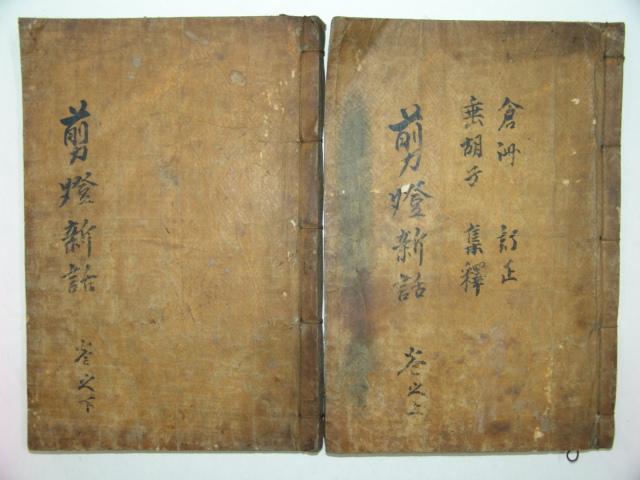 倉洲 訂正
垂胡子 集釋
剪燈新話 卷之上
剪燈新話 卷之下